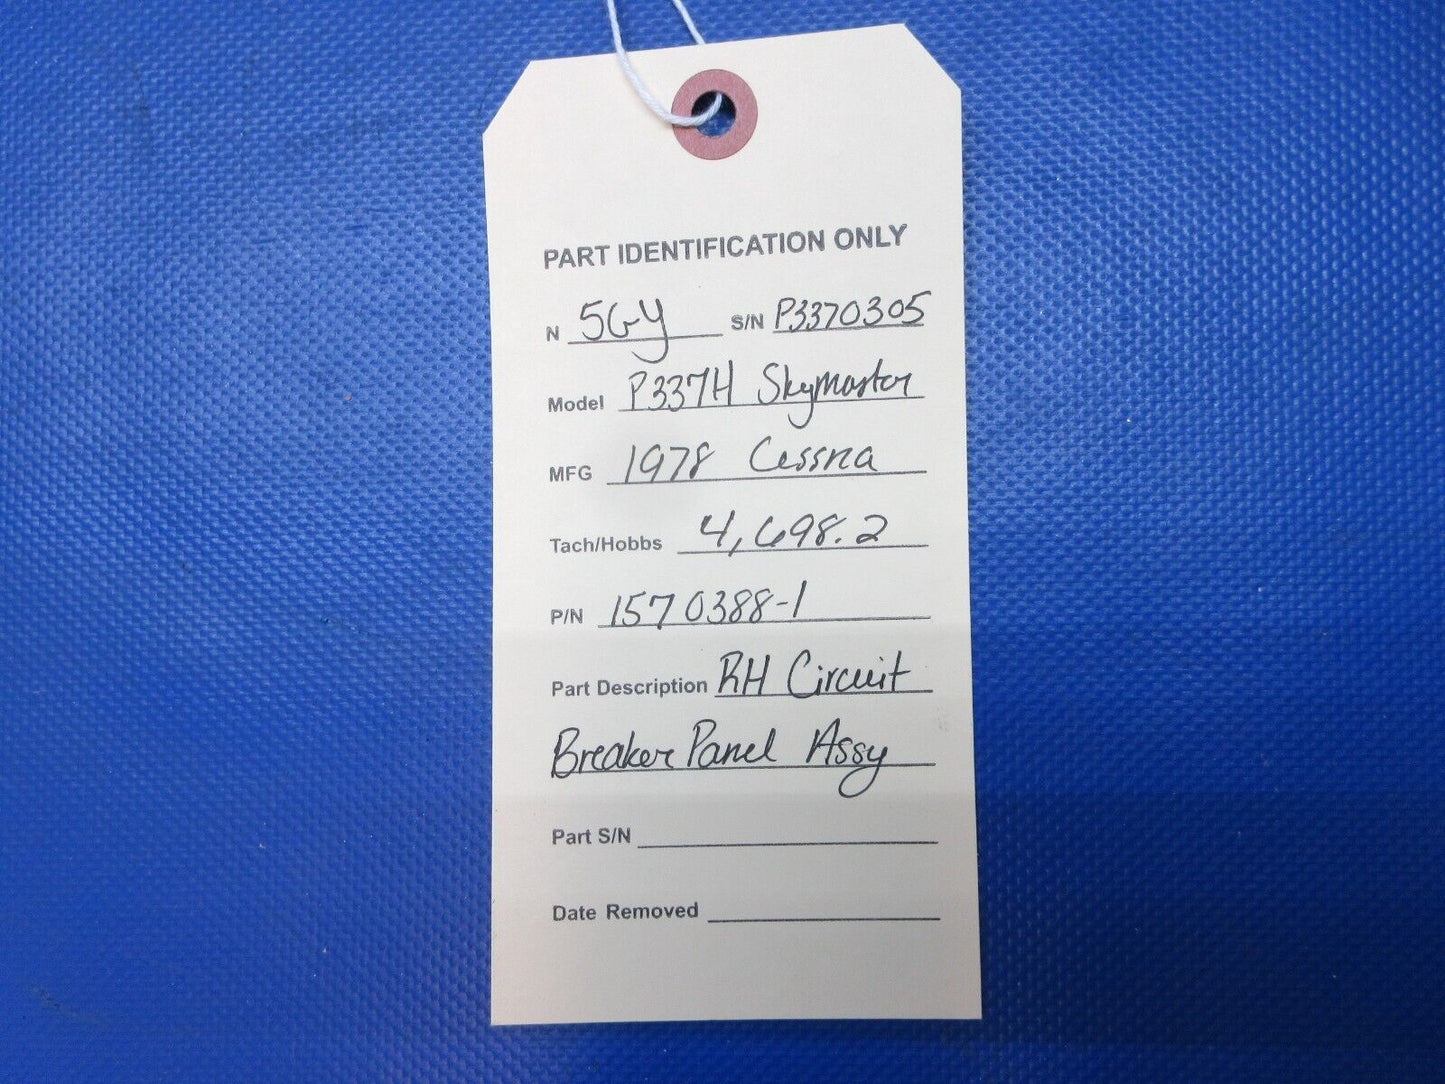 PART IDENTIFICATION ONLY
N 5GY S/N P3370305
Model P337H Skymaster
MFG 1978 Cessna
Tach/Hobbs 4,698.2
P/N 1570388-1
Part Description RH Circuit
Breaker Panel Assy
Part S/N
Date Removed